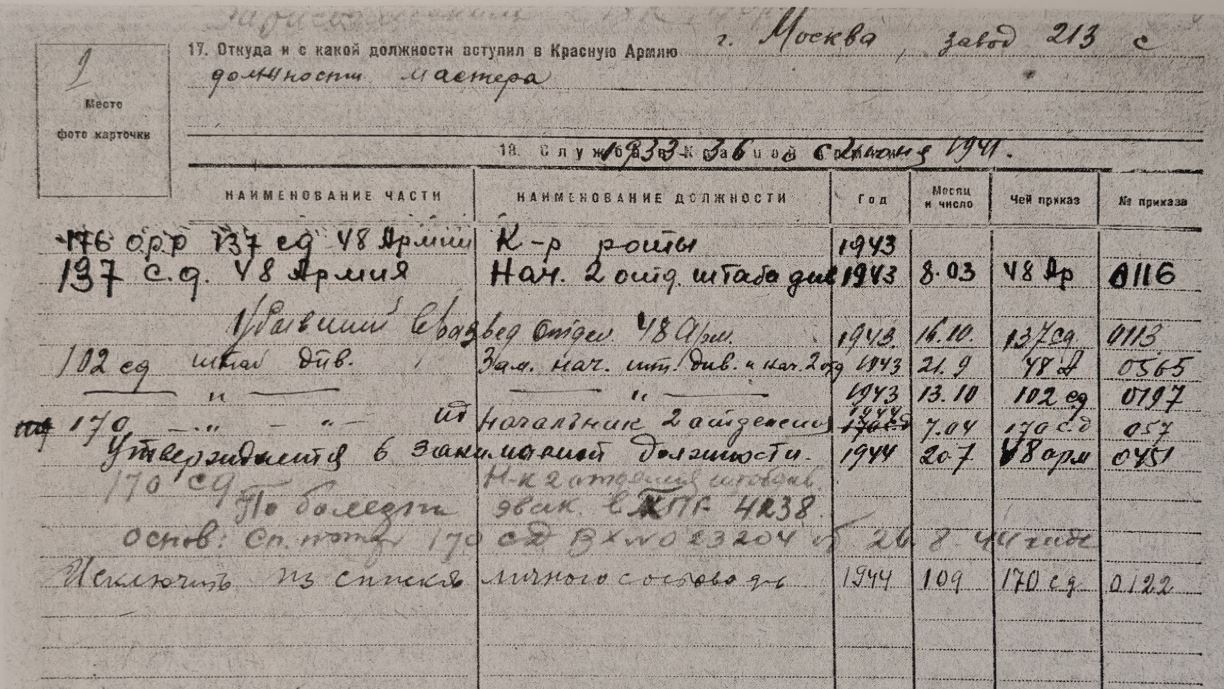 9
Место
фото карточки
17. Откуда и с какой должности вступил в Красную Армию г. Москва, завод 213 с
должности мастера
18. Служба в Красной Армии 1933-36 и с июня 1941.
НАИМЕНОВАНИЕ ЧАСТИ НАИМЕНОВАНИЕ ДОЛЖНОСТИ Год Месяц и число Чей приказ № приказа
176 орр 137 сд 48 Армии К-р роты 1943
137 с.д. 48 Армия Нач. 2 отд. штаба див 1943 8.03 48 Ар 0116
Убывший в развед отдел 48 Арм. 1943 16.10. 137 сд 0113
102 сд штаб див. Зам. нач. шт. див. и нач. 2 отд 1943 21.9 48 А 0565
— " — — " — 1943 13.10 102 сд 0197
170 — " — — " — Начальник 2 отделения 1944 7.04 170 сд 057
Утверждается в занимаемой должности. 1944 20.7 48 арм 0451
170 сд Н-к 2 отделения
По болезни эвак. в ХППГ 4238.
Основ: 170 сд Вх № 023204 26.8.44 года
Исключить из списков личного состава 1944 109 170 сд 0122